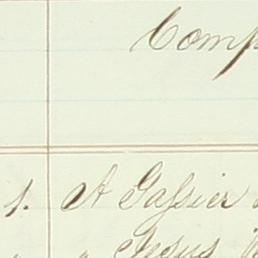 Comp
1. A Gassier
" Jesus